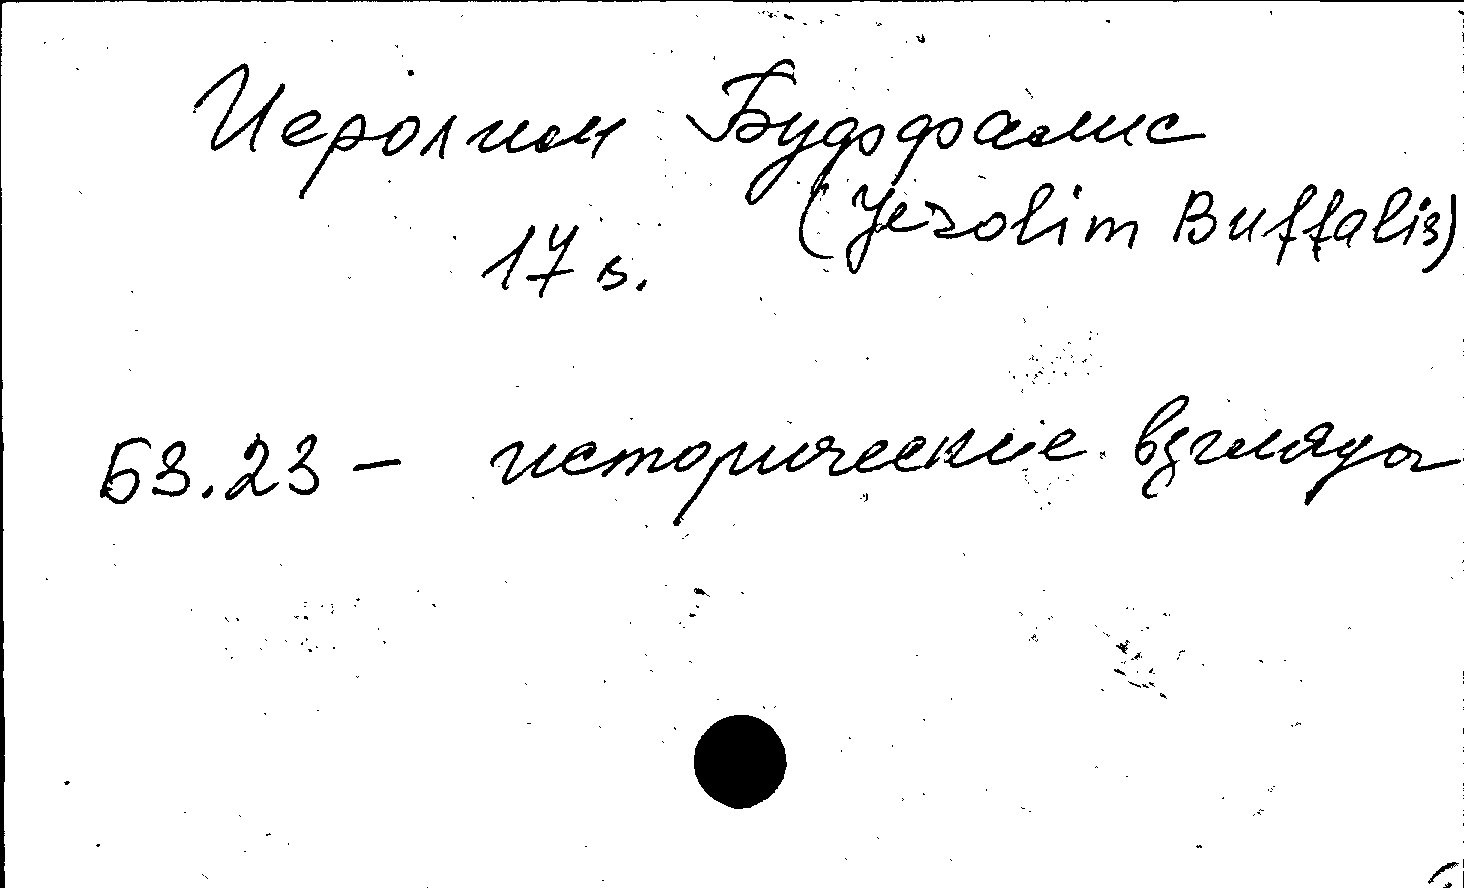 Иеролим Буффалис
(Jerolim Buffalis)
17 в.
Б3.23 – исторические взгляды